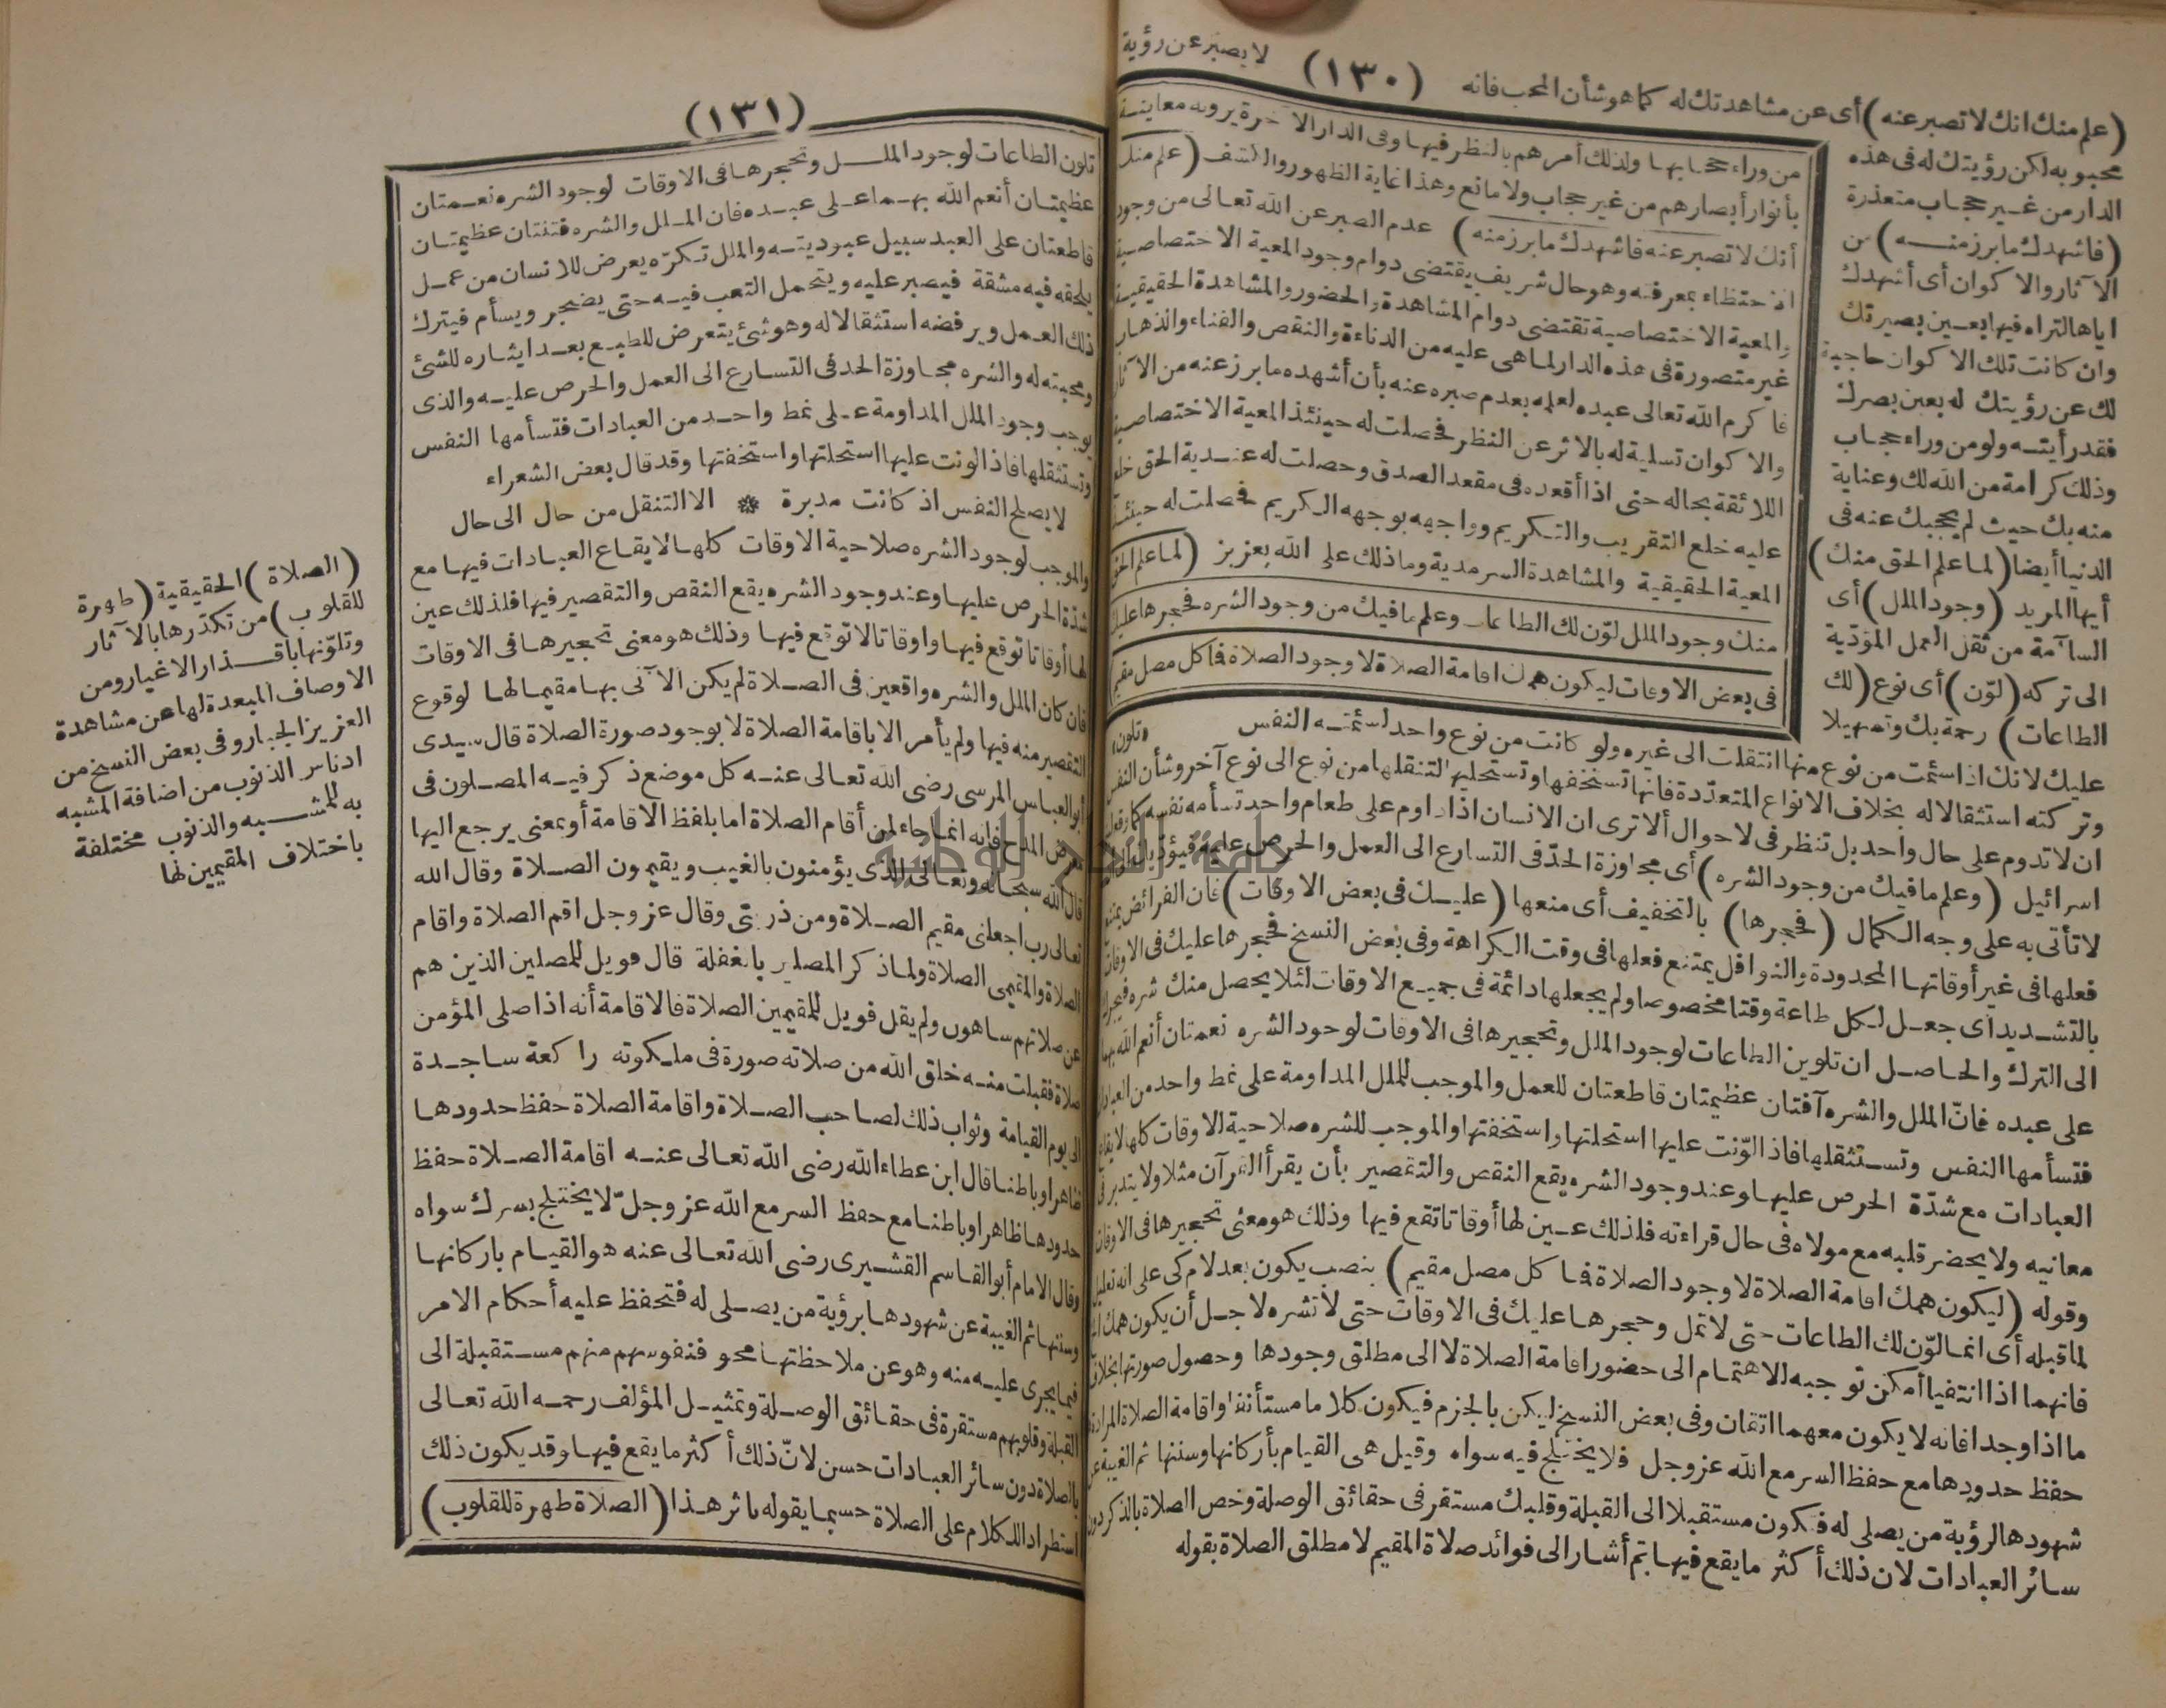 لا يصبر عن رؤية
(١٣٠)
(علم منك انك لا تصبر عنه) أى عن مشاهدتك له كما هو شأن المحب فانه
محبوبه لكن رؤيتك له فى هذه
الدار من غير حجاب متعذرة
(فاشهدك ما برز منه) من
الآثار والاكوان أى أشهدك
اياها لتراه فيها بعين بصيرتك
وان كانت تلك الاكوان حاجبة
لك عن رؤيتك له بعين بصرك
فقد رأيته ولو من وراء حجاب
وذلك كرامة من الله لك وعناية
منه بك حيث لم يحجبك عنه فى
الدنيا أيضا (لما علم الحق منك)
أيها المريد (وجود الملل) أى
السآمة من ثقل العمل المؤدّية
الى تركه (لوّن) أى نوع (لك
الطاعات) رحمة بك وتسهيلا
من وراء حجابها ولذلك أمرهم بالنظر فيها وفى الدار الآخرة يرونه معاينة
بأنوار أبصارهم من غير حجاب ولا مانع وهذا غاية الظهور والكشف (علم منك
أنك لا تصبر عنه فاشهدك ما برز منه) عدم الصبر عن الله تعالى من وجود
الاحتظاء بمعرفته وهو حال شريف يقتضى دوام وجود المعية الاختصاصية
والمعية الاختصاصية تقتضى دوام المشاهدة والحضور والمشاهدة الحقيقية
غير متصورة فى هذه الدار لما هى عليه من الدناءة والنقص والفناء والذهاب
فاكرم الله تعالى عبده لعلمه بعدم صبره عنه بأن أشهده ما برز عنه من الآثار
والاكوان تسلية له بالاثر عن النظر فحصلت له حينئذ المعية الاختصاصية
اللائقة بحاله حتى اذا أقعده فى مقعد الصدق وحصلت له عندية الحق خلع
عليه خلع التقريب والتكريم وواجهه بوجهه الكريم فحصلت له حينئذ
المعية الحقيقية والمشاهدة السرمدية وما ذلك على الله بعزيز (لما علم الحق
منك وجود الملل لوّن لك الطاعات وعلم ما فيك من وجود الشره فحجرها عليك
فى بعض الاوقات ليكون همك اقامة الصلاة لا وجود الصلاة فما كل مصل مقيم)
عليك لانك اذا سئمت من نوع منها انتقلت الى غيره ولو كانت من نوع واحد لسئمته النفس «تلون»
وتركته استثقالا له بخلاف الانواع المتعدّدة فانها تستخفها وتستحليها لتنقلها من نوع الى نوع آخر وشأن النفس
ان لا تدوم على حال واحد بل تنظر فى لاحوال ألا ترى ان الانسان اذا داوم على طعام واحد تسأمه نفسه كما وقع لبنى
اسرائيل (وعلم ما فيك من وجود الشره) أى مجاوزة الحدّ فى التسارع الى العمل والحرص عليه فيؤدّ بك
لا تأتى به على وجه الكمال (فحجرها) بالتخفيف أى منعها (عليك فى بعض الاوقات) فان الفرائض يمتنع
فعلها فى غير أوقاتها المحدودة والنوافل يمتنع فعلها فى وقت الكراهة وفى بعض النسخ فحجرها عليك فى الاوقات
بالتشديد أى جعل لكل طاعة وقتا مخصوصا ولم يجعلها دائمة فى جميع الاوقات لئلا يحصل منك شره فيجرك
الى الترك والحاصل ان تلوين الطاعات لوجود الملل وتحجيرها فى الاوقات لوجود الشره نعمتان أنعم الله بهما
على عبده فانّ الملل والشره آفتان عظيمتان قاطعتان للعمل والموجب للملل المداومة على نمط واحد من العبادات
فتسأمها النفس وتستثقلها فاذا لوّنت عليها استحلتها واستخفتها والموجب للشره صلاحية الاوقات كلها لايقاع
العبادات مع شدّة الحرص عليها وعند وجود الشره يقع النقص والتقصير بأن يقرأ القرآن مثلا ولا يتدبر فى
معانيه ولا يحضر قلبه مع مولاه فى حال قراءته فلذلك عين لها أوقاتا تقع فيها وذلك هو معنى تحجيرها فى الاوقات
وقوله (ليكون همك اقامة الصلاة لا وجود الصلاة فما كل مصل مقيم) بنصب يكون بعد لام كى على انه تعليل
لما قبله أى انما لوّن لك الطاعات حتى لا تمل وحجرها عليك فى الاوقات حتى لا تشره لاجل أن يكون همك
فانهما اذا انتفيا أمكن توجبه الاهتمام الى حضور اقامة الصلاة لا الى مطلق وجودها وحصول صورتها بخلاف
ما اذا وجدا فانه لا يكون معهما اتقان وفى بعض النسخ ليكن بالجزم فيكون كلاما مستأنفا واقامة الصلاة المرادة
حفظ حدودها مع حفظ السر مع الله عز وجل فلا يختلج فيه سواه وقيل هى القيام بأركانها وسننها ثم الغيبة عن
شهودها لرؤية من يصلى له فيكون مستقبلا الى القبلة وقلبك مستقر فى حقائق الوصلة وخص الصلاة بالذكر دون
سائر العبادات لان ذلك أكثر ما يقع فيها ثم أشار الى فوائد صلاة المقيم لا مطلق الصلاة بقوله
(١٣١)
تلون الطاعات لوجود الملل وتحجرها فى الاوقات لوجود الشره نعمتان
عظيمتان أنعم الله بهما على عبده فان الملل والشره فتنتان عظيمتان
قاطعتان على العبد سبيل عبوديته والملل تكرّه يعرض للانسان من عمل
يلحقه فيه مشقة فيصبر عليه ويتحمل التعب فيه حتى يضجر ويسأم فيترك
ذلك العمل ويرفضه استثقالا له وهو شئ يتعرض للطبع بعد ايثاره للشئ
ومحبته له والشره مجاوزة الحد فى التسارع الى العمل والحرص عليه والذى
يوجب وجود الملل المداومة على نمط واحد من العبادات فتسأمها النفس
وتستثقلها فاذا لونت عليها استحلتها واستخفتها وقد قال بعض الشعراء
لا يصلح النفس اذ كانت مدبرة * الا التنقل من حال الى حال
والموجب لوجود الشره صلاحية الاوقات كلها لايقاع العبادات فيها مع
شدّة الحرص عليها وعند وجود الشره يقع النقص والتقصير فيها فلذلك عين
لها أوقاتا توقع فيها واوقاتا لا توقع فيها وذلك هو معنى تحجيرها فى الاوقات
فان كان الملل والشره واقعين فى الصلاة لم يكن الآتى بها مقيما لها لوقوع
التقصير منه فيها ولم يأمر الا باقامة الصلاة لا بوجود صورة الصلاة قال سيدى
أبو العباس المرسى رضى الله تعالى عنه كل موضع ذكر فيه المصلون فى
معرض المدح فانه انما جاء لمن أقام الصلاة اما بلفظ الاقامة أو بمعنى يرجع اليها
قال الله سبحانه وتعالى الذى يؤمنون بالغيب ويقيمون الصلاة وقال الله
تعالى رب اجعلنى مقيم الصلاة ومن ذريتى وقال عز وجل اقم الصلاة واقام
الصلاة والمقيمى الصلاة ولما ذكر المصلين بالغفلة قال فويل للمصلين الذين هم
عن صلاتهم ساهون ولم يقل فويل للمقيمين الصلاة فالاقامة أنه اذا صلى المؤمن
صلاة فقبلت منه خلق الله من صلاته صورة فى ملكوته راكعة ساجدة
الى يوم القيامة وثواب ذلك لصاحب الصلاة واقامة الصلاة حفظ حدودها
ظاهرا وباطنا قال ابن عطاء الله رضى الله تعالى عنه اقامة الصلاة حفظ
حدودها ظاهرا وباطنا مع حفظ السر مع الله عز وجلّ لا يختلج بسرك سواه
وقال الامام أبو القاسم القشيرى رضى الله تعالى عنه هو القيام باركانها
وسننها ثم الغيبة عن شهودها برؤية من يصلى له فتحفظ عليه أحكام الامر
فيما يجرى عليه منه وهو عن ملاحظتها محو فنفوسهم منهم مستقبلة الى
القبلة وقلوبهم مستقرة فى حقائق الوصلة وتمثيل المؤلف رحمه الله تعالى
بالصلاة دون سائر العبادات حسن لانّ ذلك أكثر ما يقع فيها وقد يكون ذلك
استطراد اللكلام على الصلاة حسبما يقوله باثر هذا (الصلاة طهرة للقلوب)
(الصلاة) الحقيقية (طهرة
للقلوب) من تكدّرها بالآثار
وتلوّنها باقذار الاغيار ومن
الاوصاف المبعدة لها عن مشاهدة
العزيز الجبار وفى بعض النسخ من
ادناس الذنوب من اضافة المشبه
به للمشبه والذنوب مختلفة
باختلاف المقيمين لها